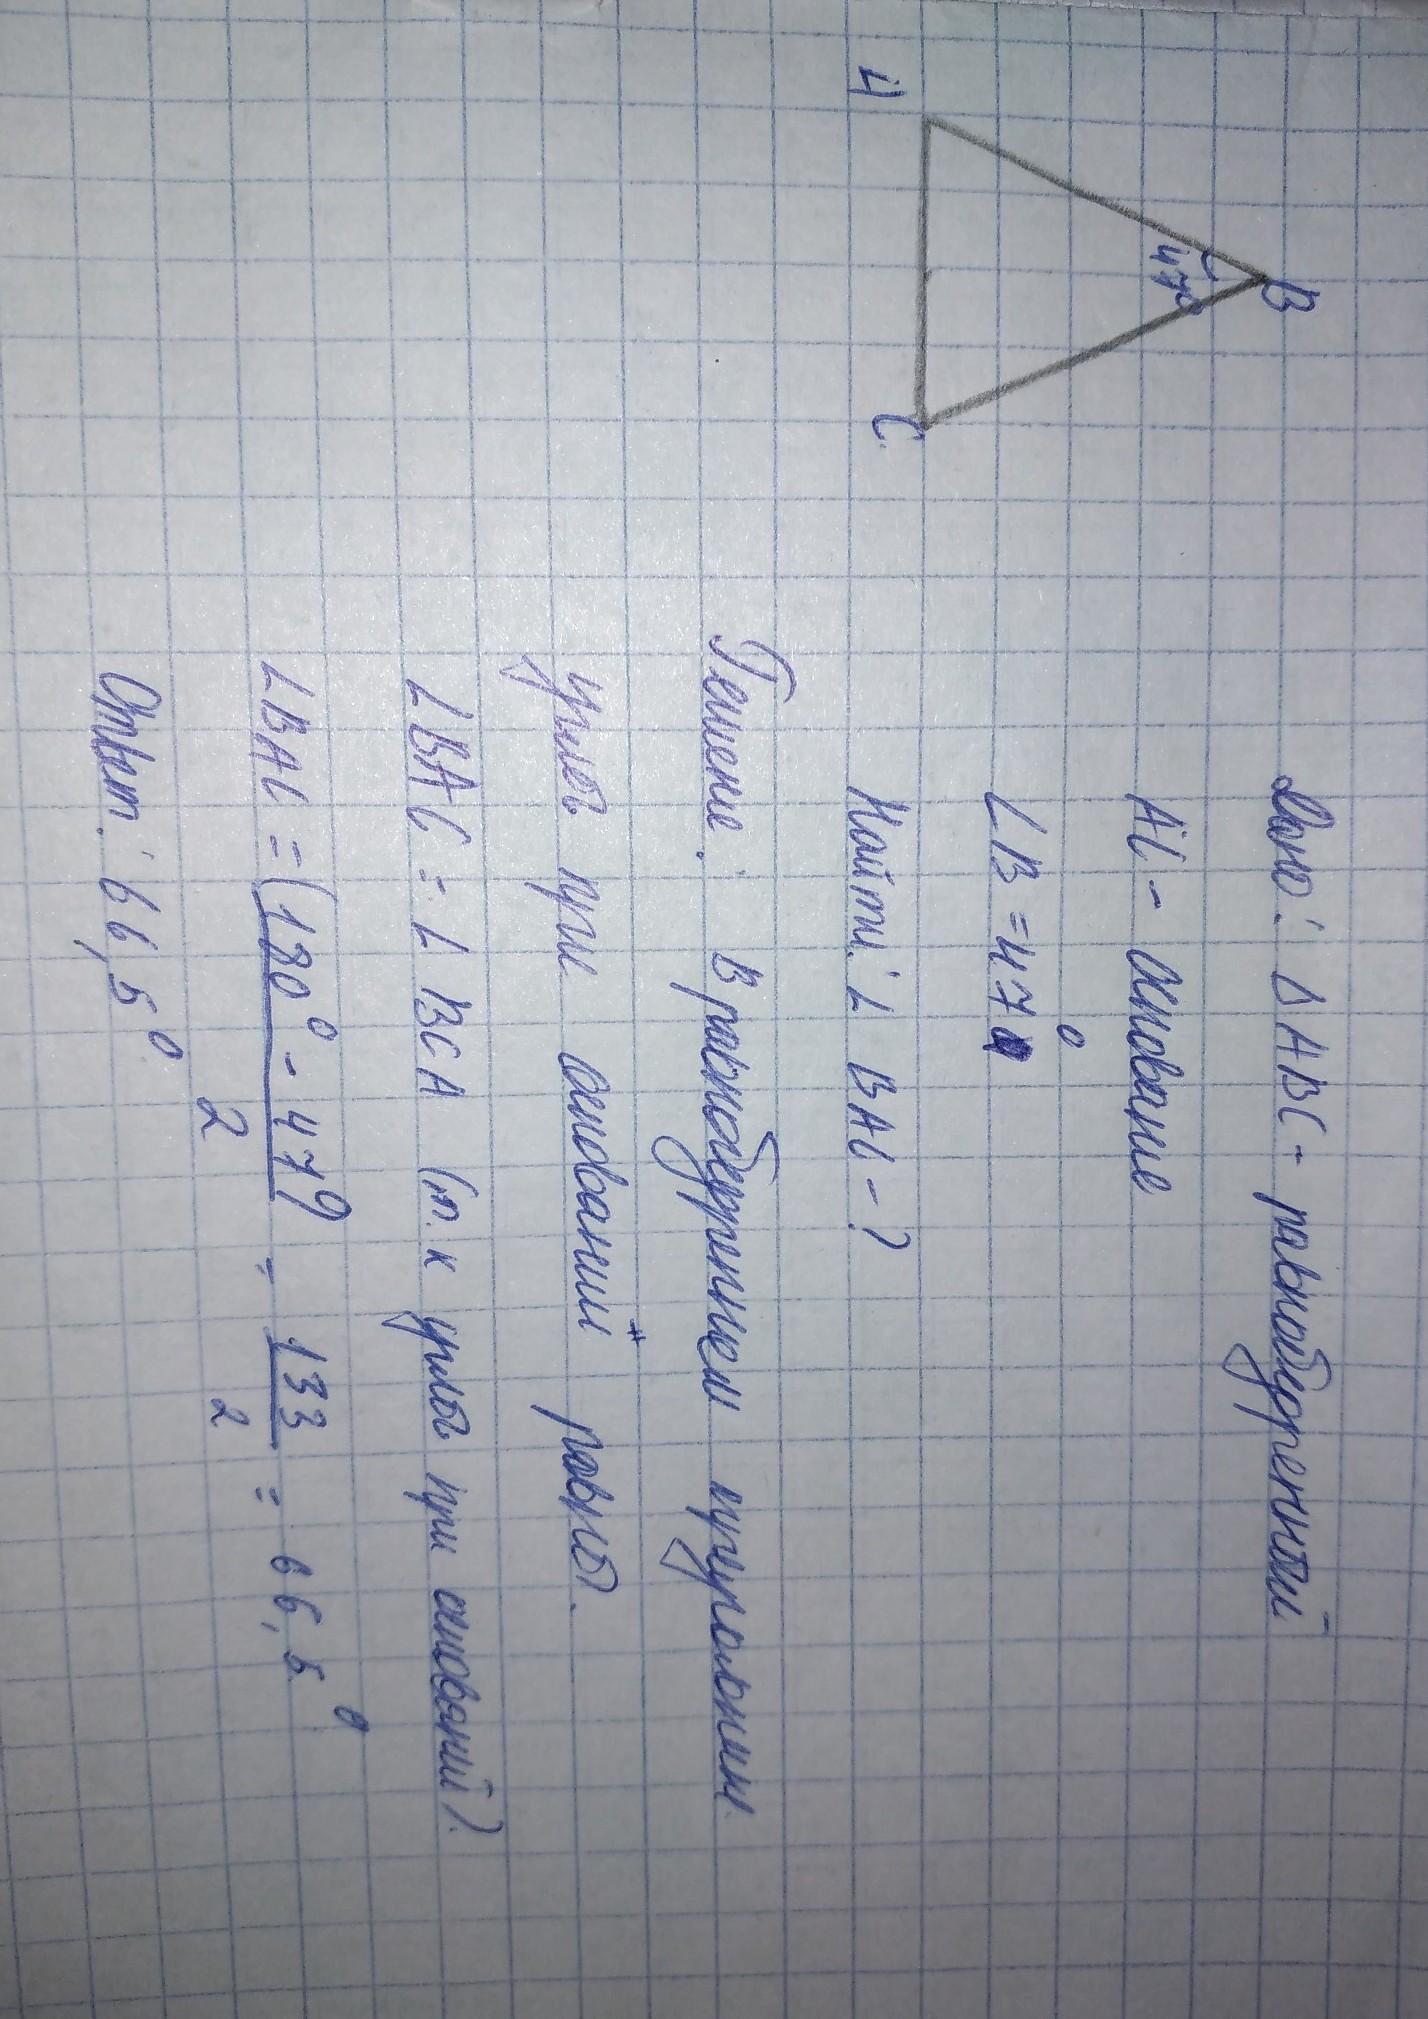 B
47°
A
C
Дано: Δ ABC - равнобедренный
AC - основание
∠B = 47°
Найти: ∠ BAC - ?
Решение: В равнобедренном треугольнике
углы при основании равны.
∠BAC = ∠ BCA (т.к углы при оснований).
∠BAC = (180° - 47°) / 2 = 133 / 2 = 66,5°
Ответ: 66,5°